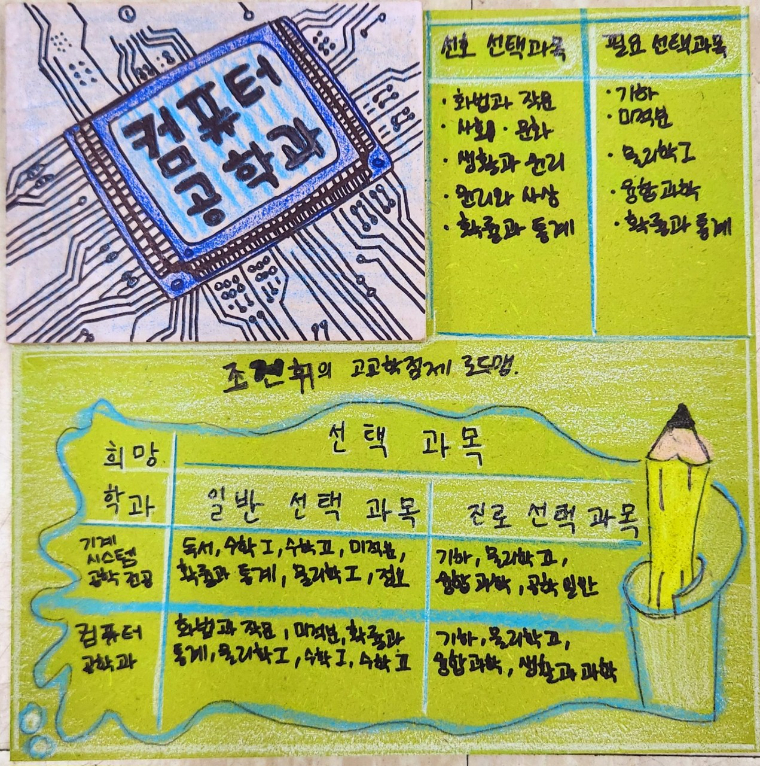 컴퓨터
공학과
선호 선택과목
· 화법과 작문
· 사회 · 문화
· 생활과 윤리
· 윤리와 사상
· 확률과 통계
필요 선택과목
· 기하
· 미적분
· 물리학 I
· 융합과학
· 확률과 통계
조건휘의 고교학점제 로드맵.
희망
학과
선택 과목
일반 선택 과목
진로 선택 과목
기계
시스템
공학 전공
독서, 수학 I, 수학 II, 미적분,
확률과 통계, 물리학 I, 정보
기하, 물리학 II,
융합 과학, 공학 일반
컴퓨터
공학과
화법과 작문, 미적분, 확률과
통계, 물리학 I, 수학 I, 수학 II
기하, 물리학 II,
융합과학, 생활과 과학